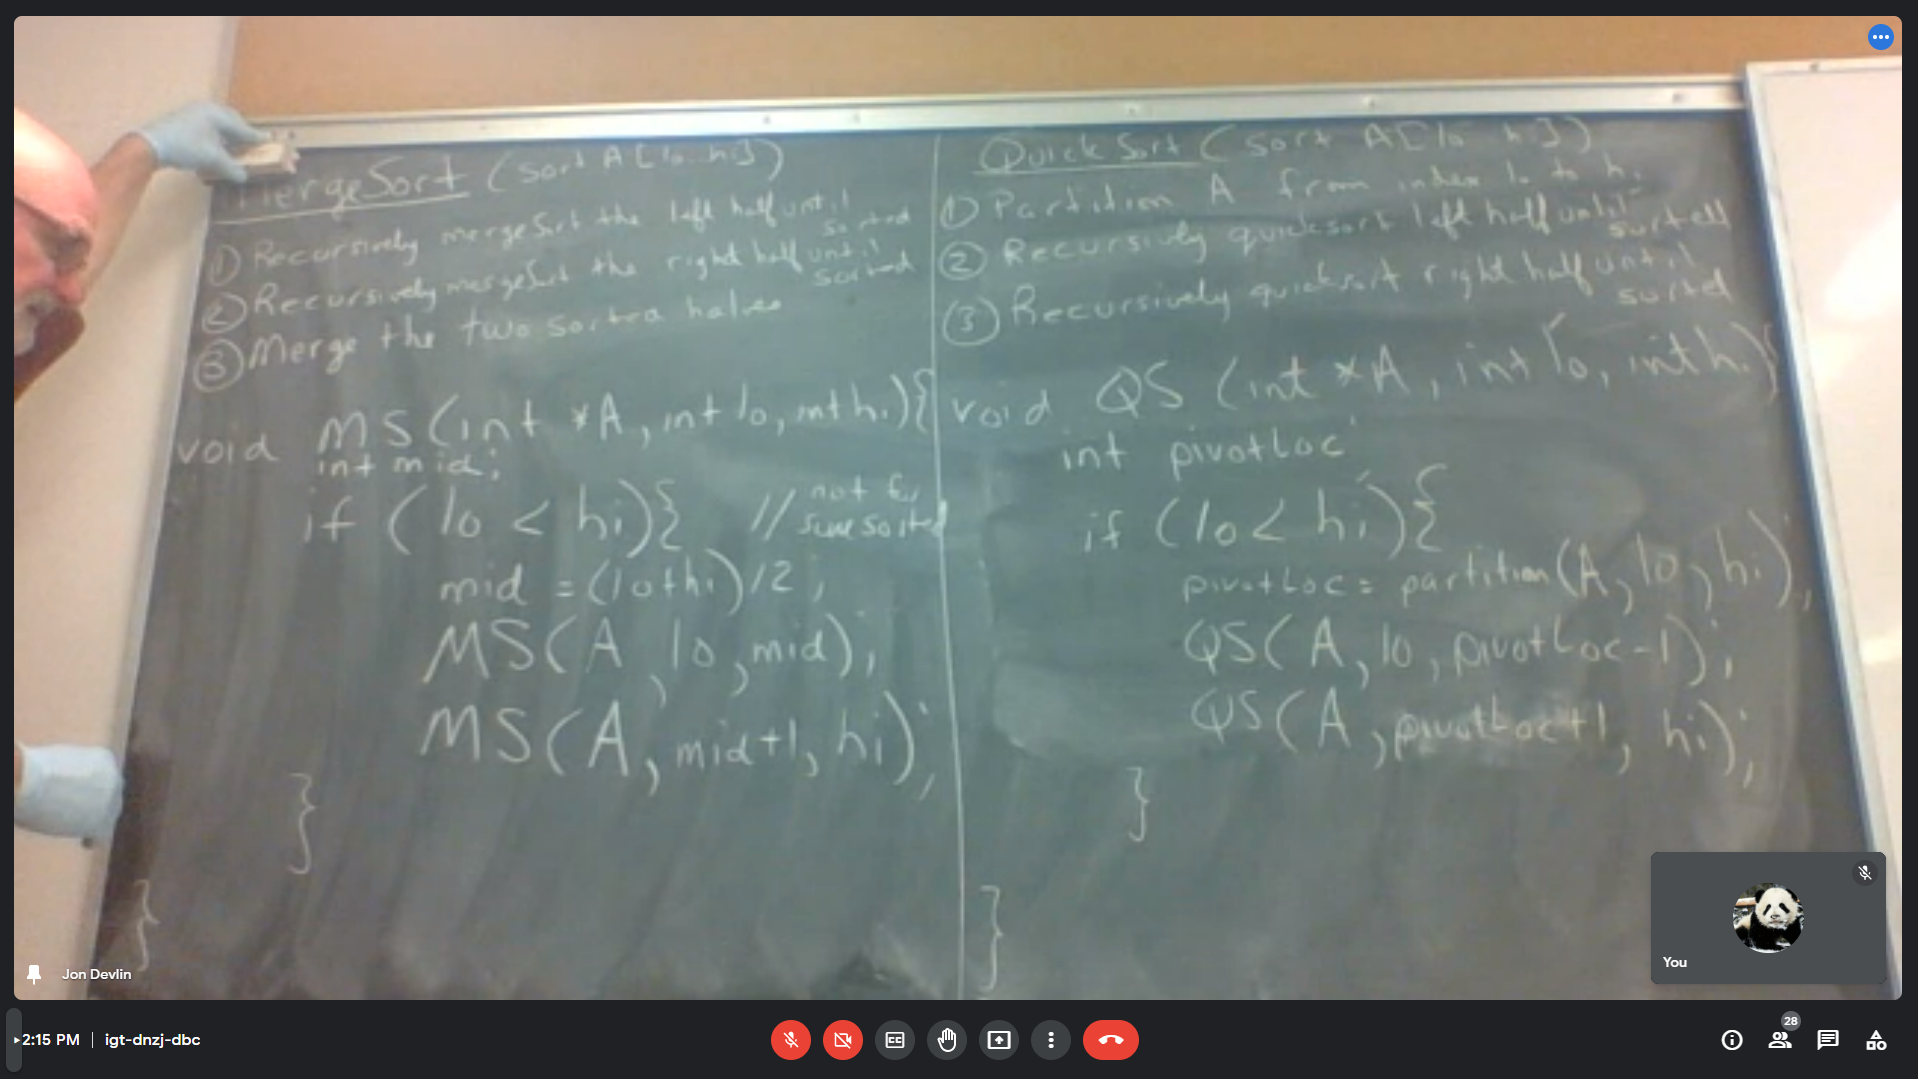 MergeSort (sort A[lo..hi])
① Recursively mergeSort the left half until
sorted
② Recursively mergeSort the right half until
sorted
③ Merge the two sorted halves
void MS(int *A, int lo, int hi){
int mid;
if (lo < hi){ // not for
sure sorted
mid = (lo+hi)/2;
MS(A, lo, mid);
MS(A, mid+1, hi);
}
}
QuickSort (sort A[lo..hi])
① Partition A from index lo to hi
② Recursively quicksort left half until
sorted
③ Recursively quicksort right half until
sorted
void QS (int *A, int lo, int hi){
int pivotLoc;
if (lo < hi){
pivotLoc = partition(A, lo, hi);
QS(A, lo, pivotLoc-1);
QS(A, pivotLoc+1, hi);
}
}
You
Jon Devlin
2:15 PM | igt-dnzj-dbc
28